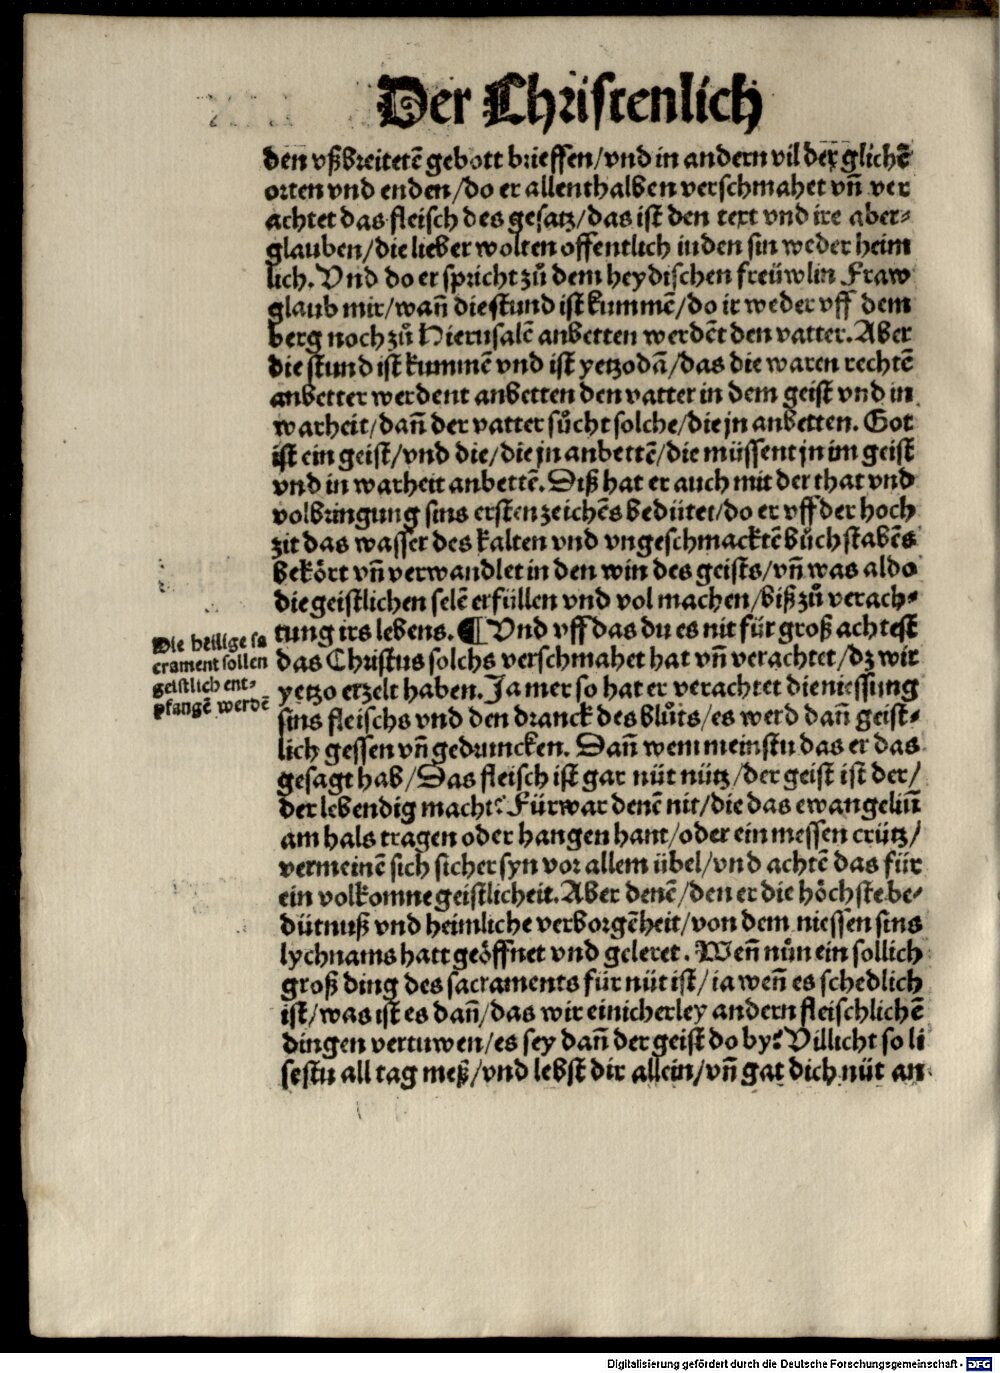 Der Christenlich
den vßbreitetē gebott brieffen/vnd in andern vil der glichē
orten vnd enden/do er allenthalben verschmahet vñ ver
achtet das fleisch des gesatz/das ist den text vnd ire aber⸗
glauben/die lieber wolten offentlich inden sin weder heim
lich. Vnd do er spricht zů dem heydischen freüwlin Fraw
glaub mir/wañ die stund ist kummē/do ir weder vff dem
berg noch zů Hierusalē anbetten werdēt den vatter. Aber
die stund ist kummē vnd ist yetzodā/das die waren rechtē
anbetter werdent anbetten den vatter in dem geist vnd in
warheit/dañ der vatter sůcht solche/die jn anbetten. Got
ist ein geist/vnd die/die jn anbettē/die müssent jn im geist
vnd in warheit anbettē. Diß hat er auch mit der that vnd
volbringung sins ersten zeichēs bedütet/do er vff der hoch
zit das wasser des kalten vnd vngeschmacktē bůchstabēs
bekört vñ verwandlet in den win des geists/vñ was aldo
die geistlichen selē erfüllen vnd vol machen/biß zů verach⸗
tung irs lebens. ¶ Vnd vff das du es nit für groß achtest
das Christus solchs verschmahet hat vñ verachtet/dz wir
yetzo erzelt haben. Ja mer so hat er verachtet die niessung
sins fleischs vnd den dranck des blůts/es werd dañ geist⸗
lich gessen vñ gedruncken. Dañ wem meinstu das er das
gesagt hab/Das fleisch ist gar nüt nütz/der geist ist der/
der lebendig macht? Fürwar denē nit/die das ewangeliū
am hals tragen oder hangen hant/oder ein messen crütz/
vermeinē sich sicher syn vor allem übel/vnd achtē das für
ein volkomne geistlicheit. Aber denē/den er die höchste be⸗
dütnuß vnd heimliche verborgēheit/von dem niessen sins
lychnams hatt geöffnet vnd geleret. Weñ nůn ein sollich
groß ding des sacraments für nüt ist/ia weñ es schedlich
ist/was ist es dañ/das wir einicherley andern fleischlichē
dingen vertuwen/es sey dañ der geist do by? Villicht so li
sestu all tag meß/vnd lebst dir allein/vñ gat dich nüt an
Die heilige sa
crament sollen
geistlich ent⸗
pfangē werdē
Digitalisierung gefördert durch die Deutsche Forschungsgemeinschaft - DFG